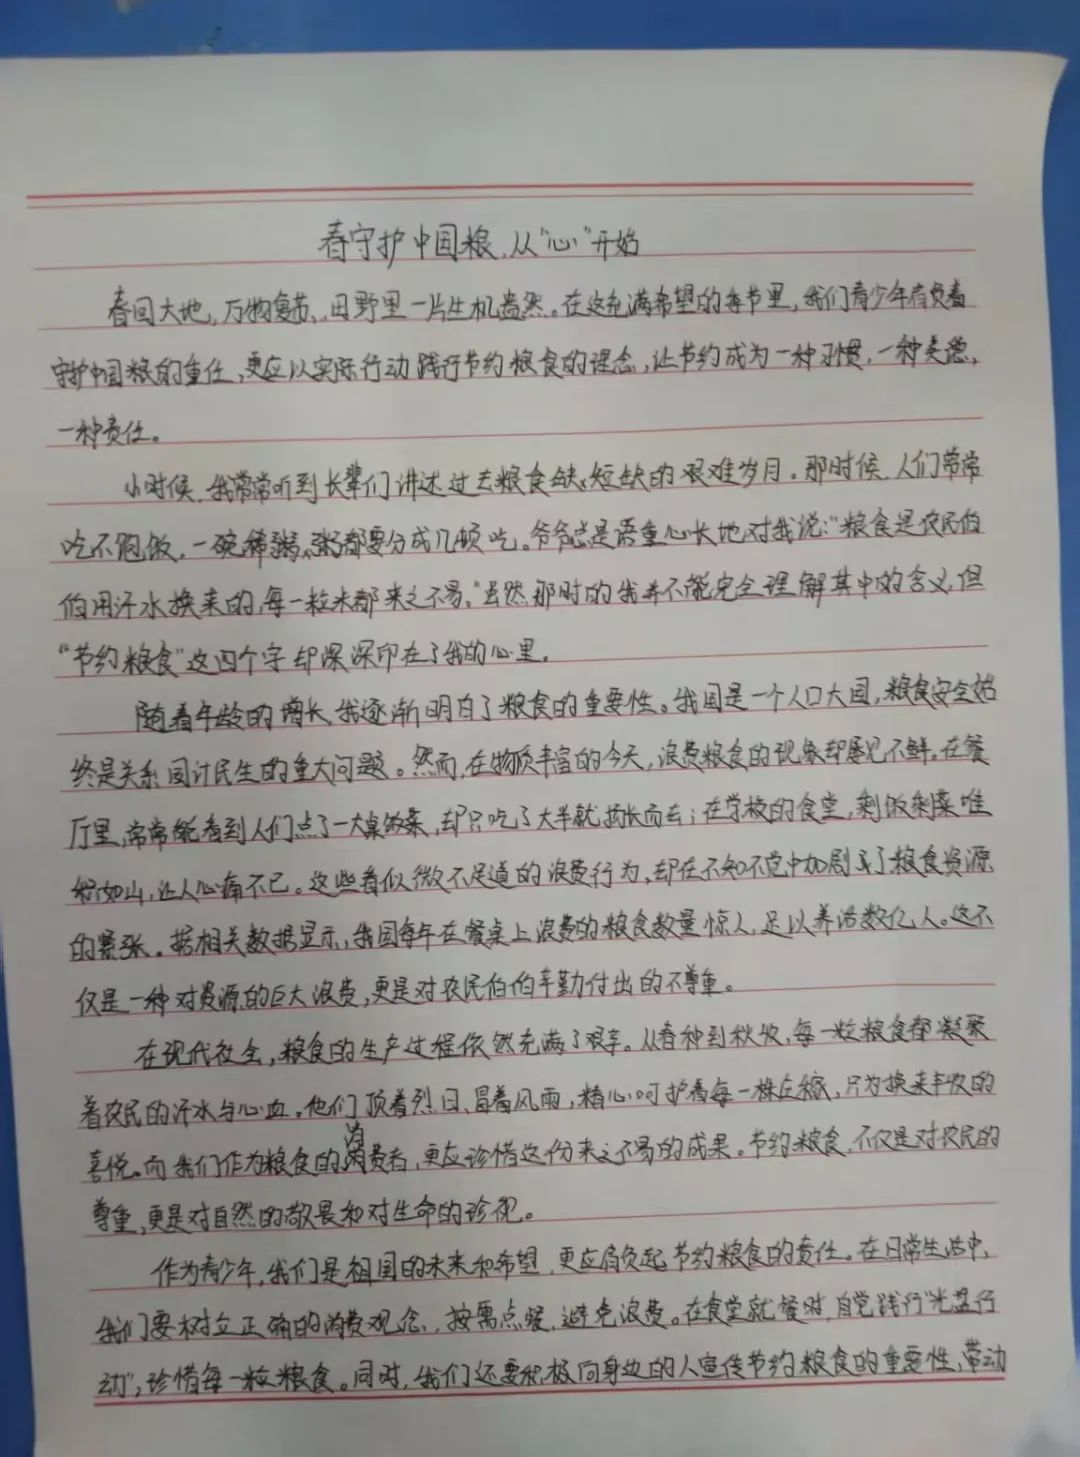 春守护中国粮,从“心”开始
春回大地,万物复苏,田野里一片生机盎然。在这充满希望的季节里,我们青少年肩负着
守护中国粮的重任,更应以实际行动践行节约粮食的理念,让节约成为一种习惯,一种美德,
一种责任。
小时候,我常常听到长辈们讲述过去粮食缺短缺的艰难岁月。那时候,人们常常
吃不饱饭,一碗稀粥粥都要分成几顿吃。爷爷总是语重心长地对我说:“粮食是农民伯
伯用汗水换来的,每一粒米都来之不易。”虽然那时的我并不能完全理解其中的含义,但
“节约粮食”这四个字却深深印在了我的心里。
随着年龄的增长,我逐渐明白了粮食的重要性。我国是一个人口大国,粮食安全始
终是关系国计民生的重大问题。然而,在物质丰富的今天,浪费粮食的现象却屡见不鲜。在餐
厅里,常常能看到人们点了一大桌饭菜,却只吃了大半就扬长而去;在学校的食堂,剩饭剩菜堆
积如山,让人心痛不已。这些看似微不足道的浪费行为,却在不知不觉中加剧了粮食资源
的紧张。据相关数据显示,我国每年在餐桌上浪费的粮食数量惊人,足以养活数亿人。这不
仅是一种对资源的巨大浪费,更是对农民伯伯辛勤付出的不尊重。
在现代社会,粮食的生产过程依然充满了艰辛。从春种到秋收,每一粒粮食都凝聚
着农民的汗水与心血。他们顶着烈日、冒着风雨,精心呵护着每一株庄稼,只为换来丰收的
喜悦。而我们作为粮食的消费者,更应珍惜这份来之不易的成果。节约粮食,不仅是对农民的
尊重,更是对自然的敬畏和对生命的珍视。
作为青少年,我们是祖国的未来和希望,更应肩负起节约粮食的责任。在日常生活中,
我们要树立正确的消费观念,按需点餐,避免浪费。在食堂就餐时,自觉践行“光盘行
动”,珍惜每一粒粮食。同时,我们还要积极向身边的人宣传节约粮食的重要性,带动